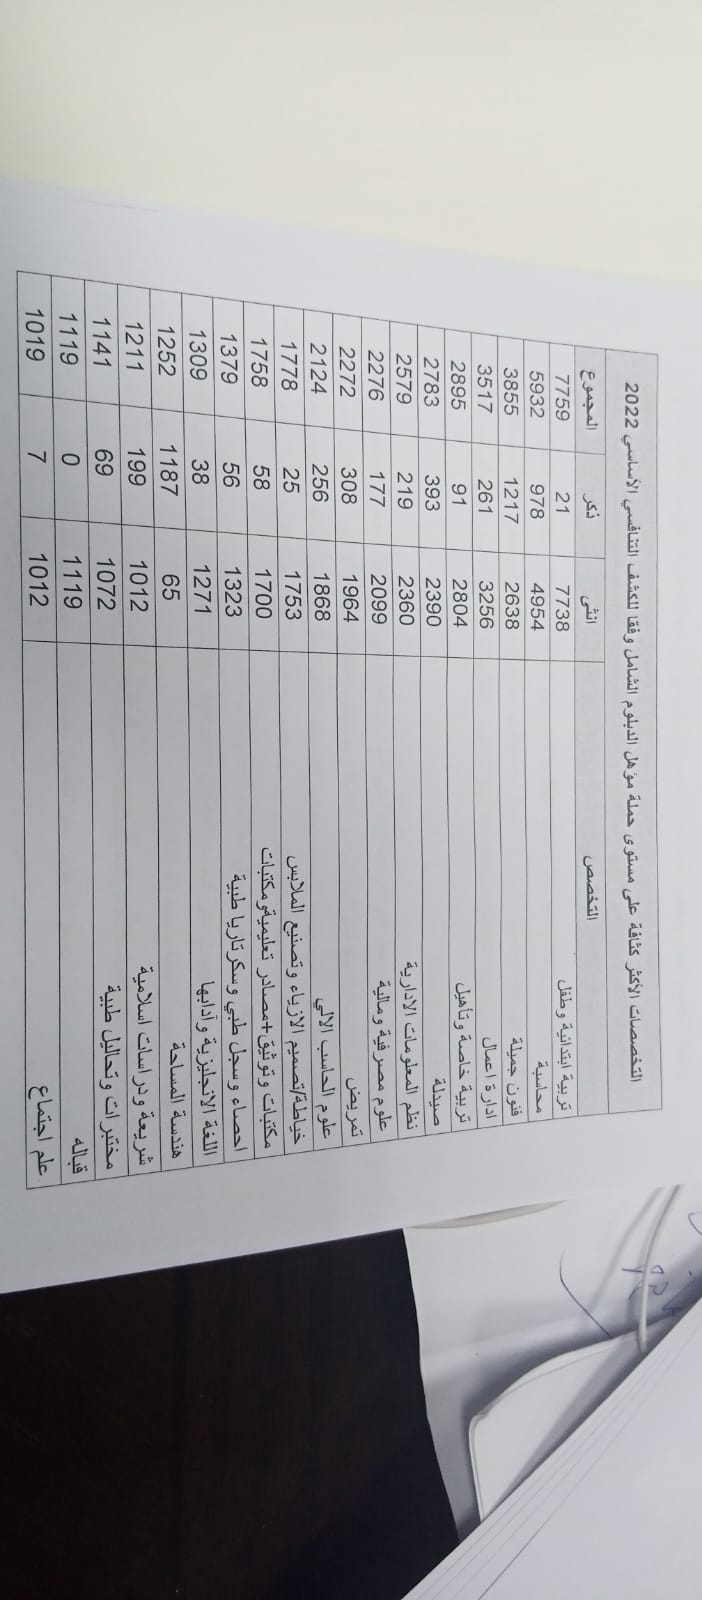 التخصصات الأكثر كثافة على مستوى حملة مؤهل الدبلوم الشامل وفقا للكشف التنافسي الأساسي 2022
التخصص انثى ذكر المجموع
تربية ابتدائية وطفل 7738 21 7759
محاسبة 4954 978 5932
فنون جميلة 2638 1217 3855
ادارة اعمال 3256 261 3517
تربية خاصة وتأهيل 2804 91 2895
صيدلة 2390 393 2783
نظم المعلومات الادارية 2360 219 2579
علوم مصرفية ومالية 2099 177 2276
تمريض 1964 308 2272
علوم الحاسب الالي 1868 256 2124
خياطة/تصميم الازياء وتصنيع الملابس 1753 25 1778
مكتبات وتوثيق+مصادر تعليمية ومكتبات 1700 58 1758
احصاء وسجل طبي وسكرتاريا طبية 1323 56 1379
اللغة الانجليزية وآدابها 1271 38 1309
هندسة المساحة 65 1187 1252
شريعة ودراسات اسلامية 1012 199 1211
مختبرات وتحاليل طبية 1072 69 1141
قبالة 1119 0 1119
علم اجتماع 1012 7 1019